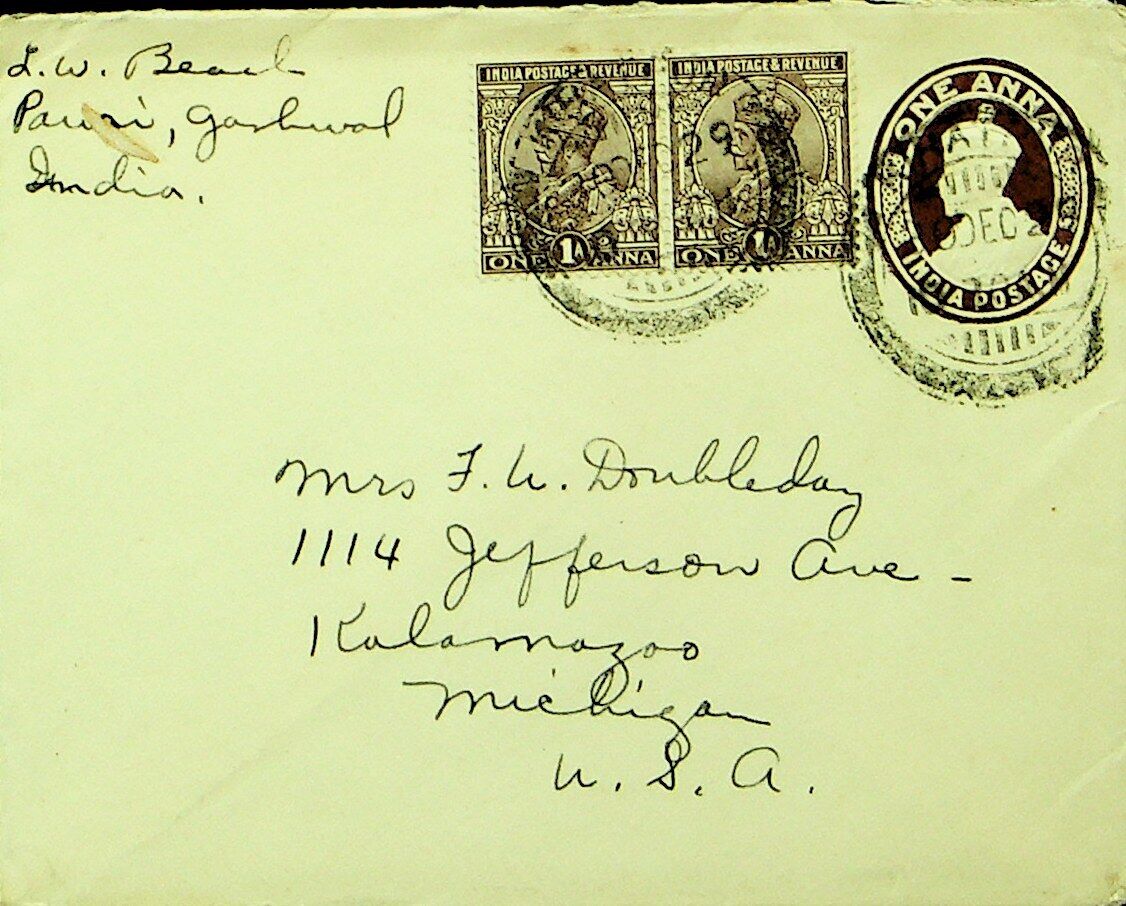 L. W. Beach
Pauri, Garhwal
India.
INDIA POSTAGE & REVENUE
ONE 1A ANNA
INDIA POSTAGE & REVENUE
ONE 1A ANNA
ONE ANNA
INDIA POSTAGE
DEC 2
Mrs F. W. Doubleday
1114 Jefferson Ave -
Kalamazoo
Michigan
U. S. A.